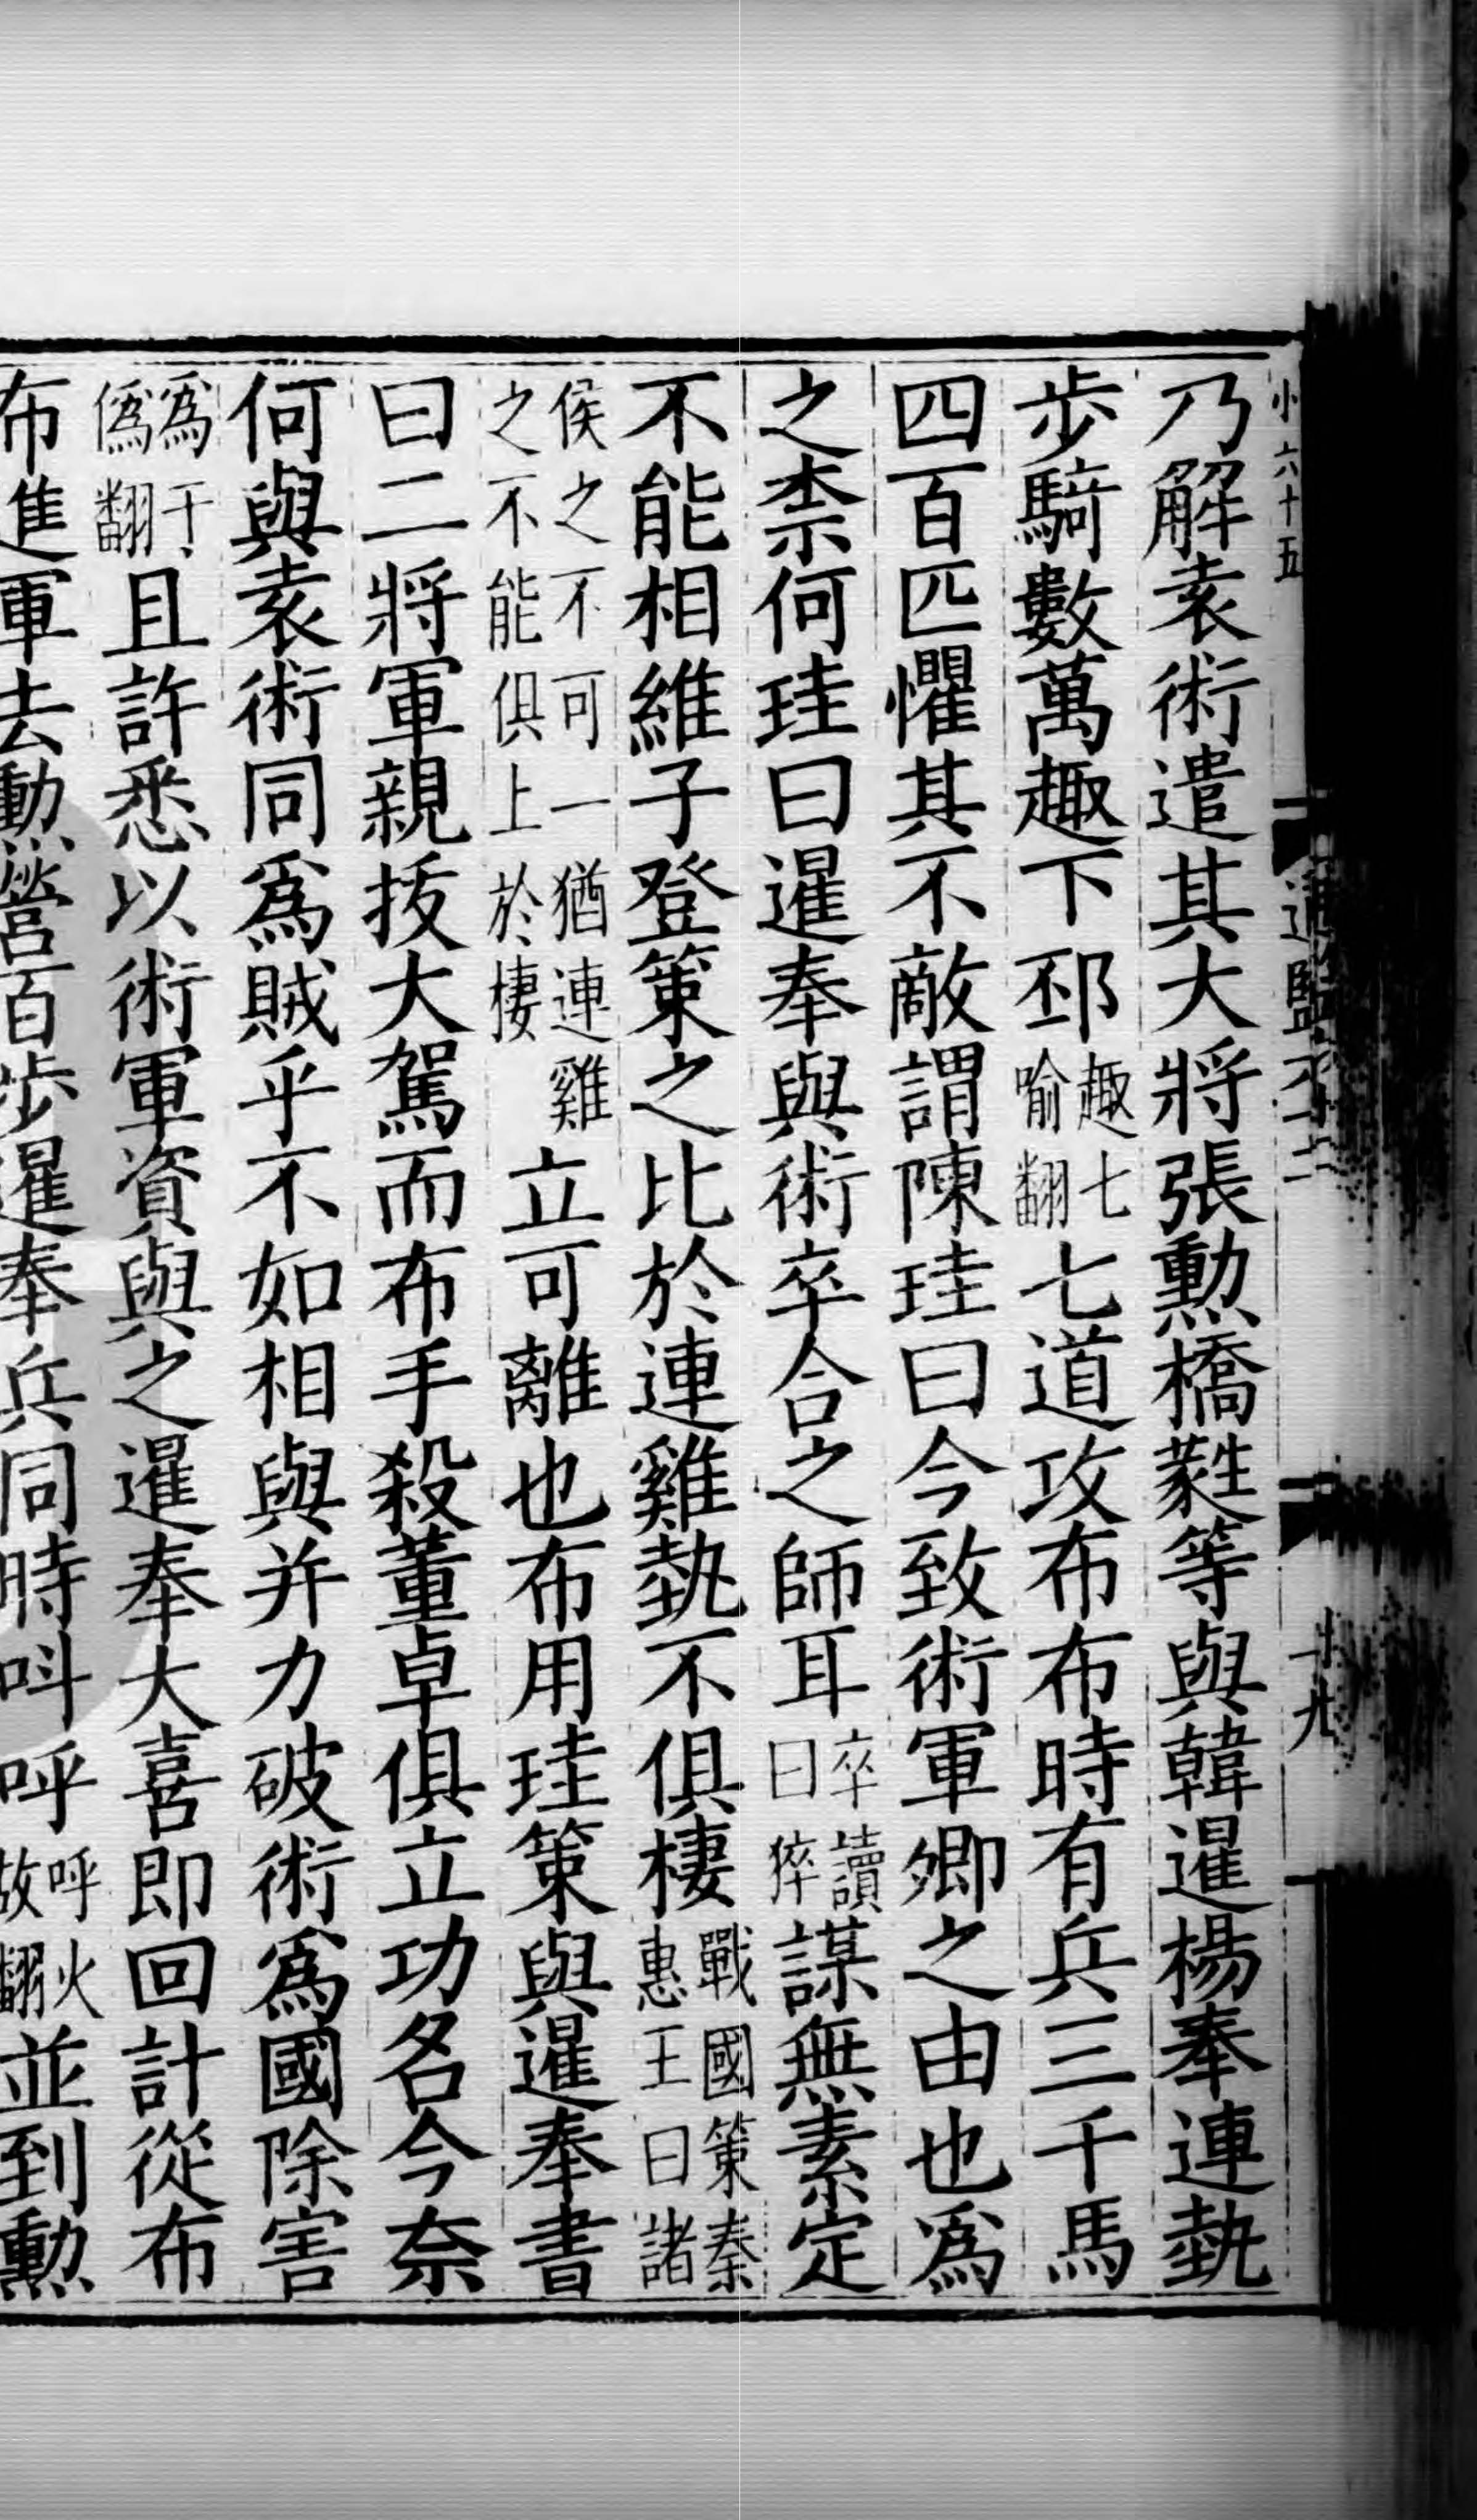 小六十五
通鑑六十二
十九
乃解袁術遣其大將張勳橋蕤等與韓暹楊奉連埶
步騎數萬趣下邳趣七喻翻七道攻布布時有兵三千馬
四百匹懼其不敵謂陳珪曰今致術軍卿之由也爲
之柰何珪曰暹奉與術卒合之師耳卒讀曰猝謀無素定
不能相維子登策之比於連雞埶不俱棲戰國策秦惠王曰諸
侯之不可一猶連雞之不能俱上於棲立可離也布用珪策與暹奉書
曰二將軍親拔大駕而布手殺董卓俱立功名今柰
何與袁術同爲賊乎不如相與并力破術爲國除害
爲于僞翻且許悉以術軍資與之暹奉大喜即回計從布
布進軍去勳營百步暹奉兵同時叫呼呼火故翻並到勳